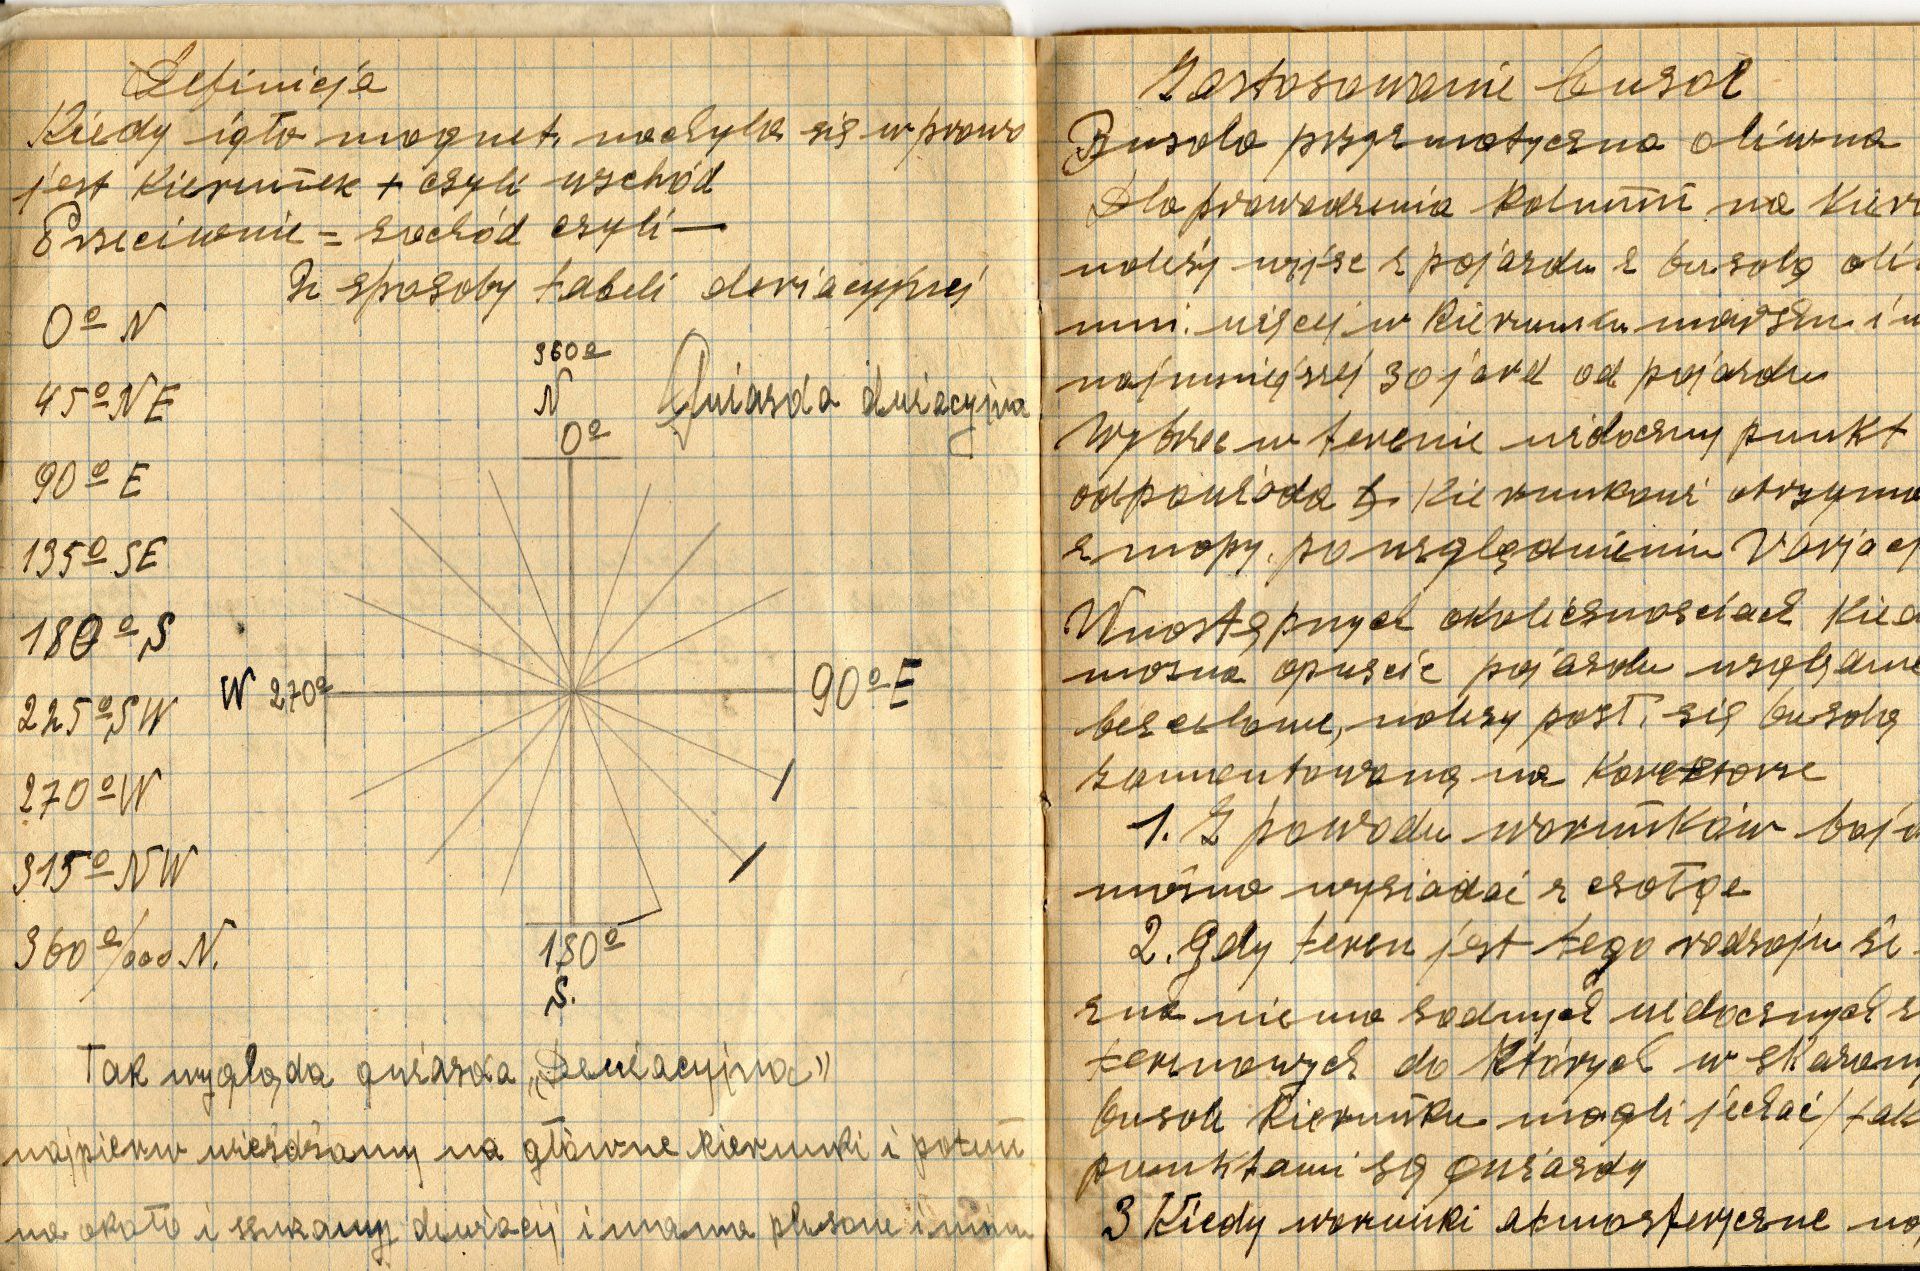 Definicja
Kiedy igła magnet. nachyla się w prawo
jest kierunek + czyli wschód
Przeciwnie = zachód czyli —
sposoby tabeli dewiacyjnej
0° N
45° NE
90° E
135° SE
180° S
225° SW
270° W
315° NW
360°/000 N.
360°
N
0°
Gwiazda dewiacyjna
W 270°
90° E
180°
S.
Tak wygląda gwiazda „Dewiacyjna”
najpierw wieżdżamy na główne kierunki i potem
na około i szukamy dewiacji i mamy plusowe i
Zastosowanie busol
Busola pryzmatyczna oliwna
Dla prowadzenia kolumn na kier
należy wyjść z pojazdu z busolą oli
mni. więcej w kierunku marszu i w
najmniejszej 30 jard od pojazdu
Wybrać w terenie widoczny punkt
odpowiada kierunkowi otrzyma
z mapy. po uwzględnieniu Varjacj
W następnych okolicznościach kied
można opuścić pojazdu względnie
bezcelowe, należy posł. się busolą
zamontowaną na korektorze
1. Z powodu warunków boju
można wysiadać z czołga
2. Gdy teren jest tego rodzaju że
na niema żadnych widocznych
terenowych do których w
busoli kierunku mogli jechać / tak
punktami są gwiazdy
3 Kiedy warunki atmosferyczne